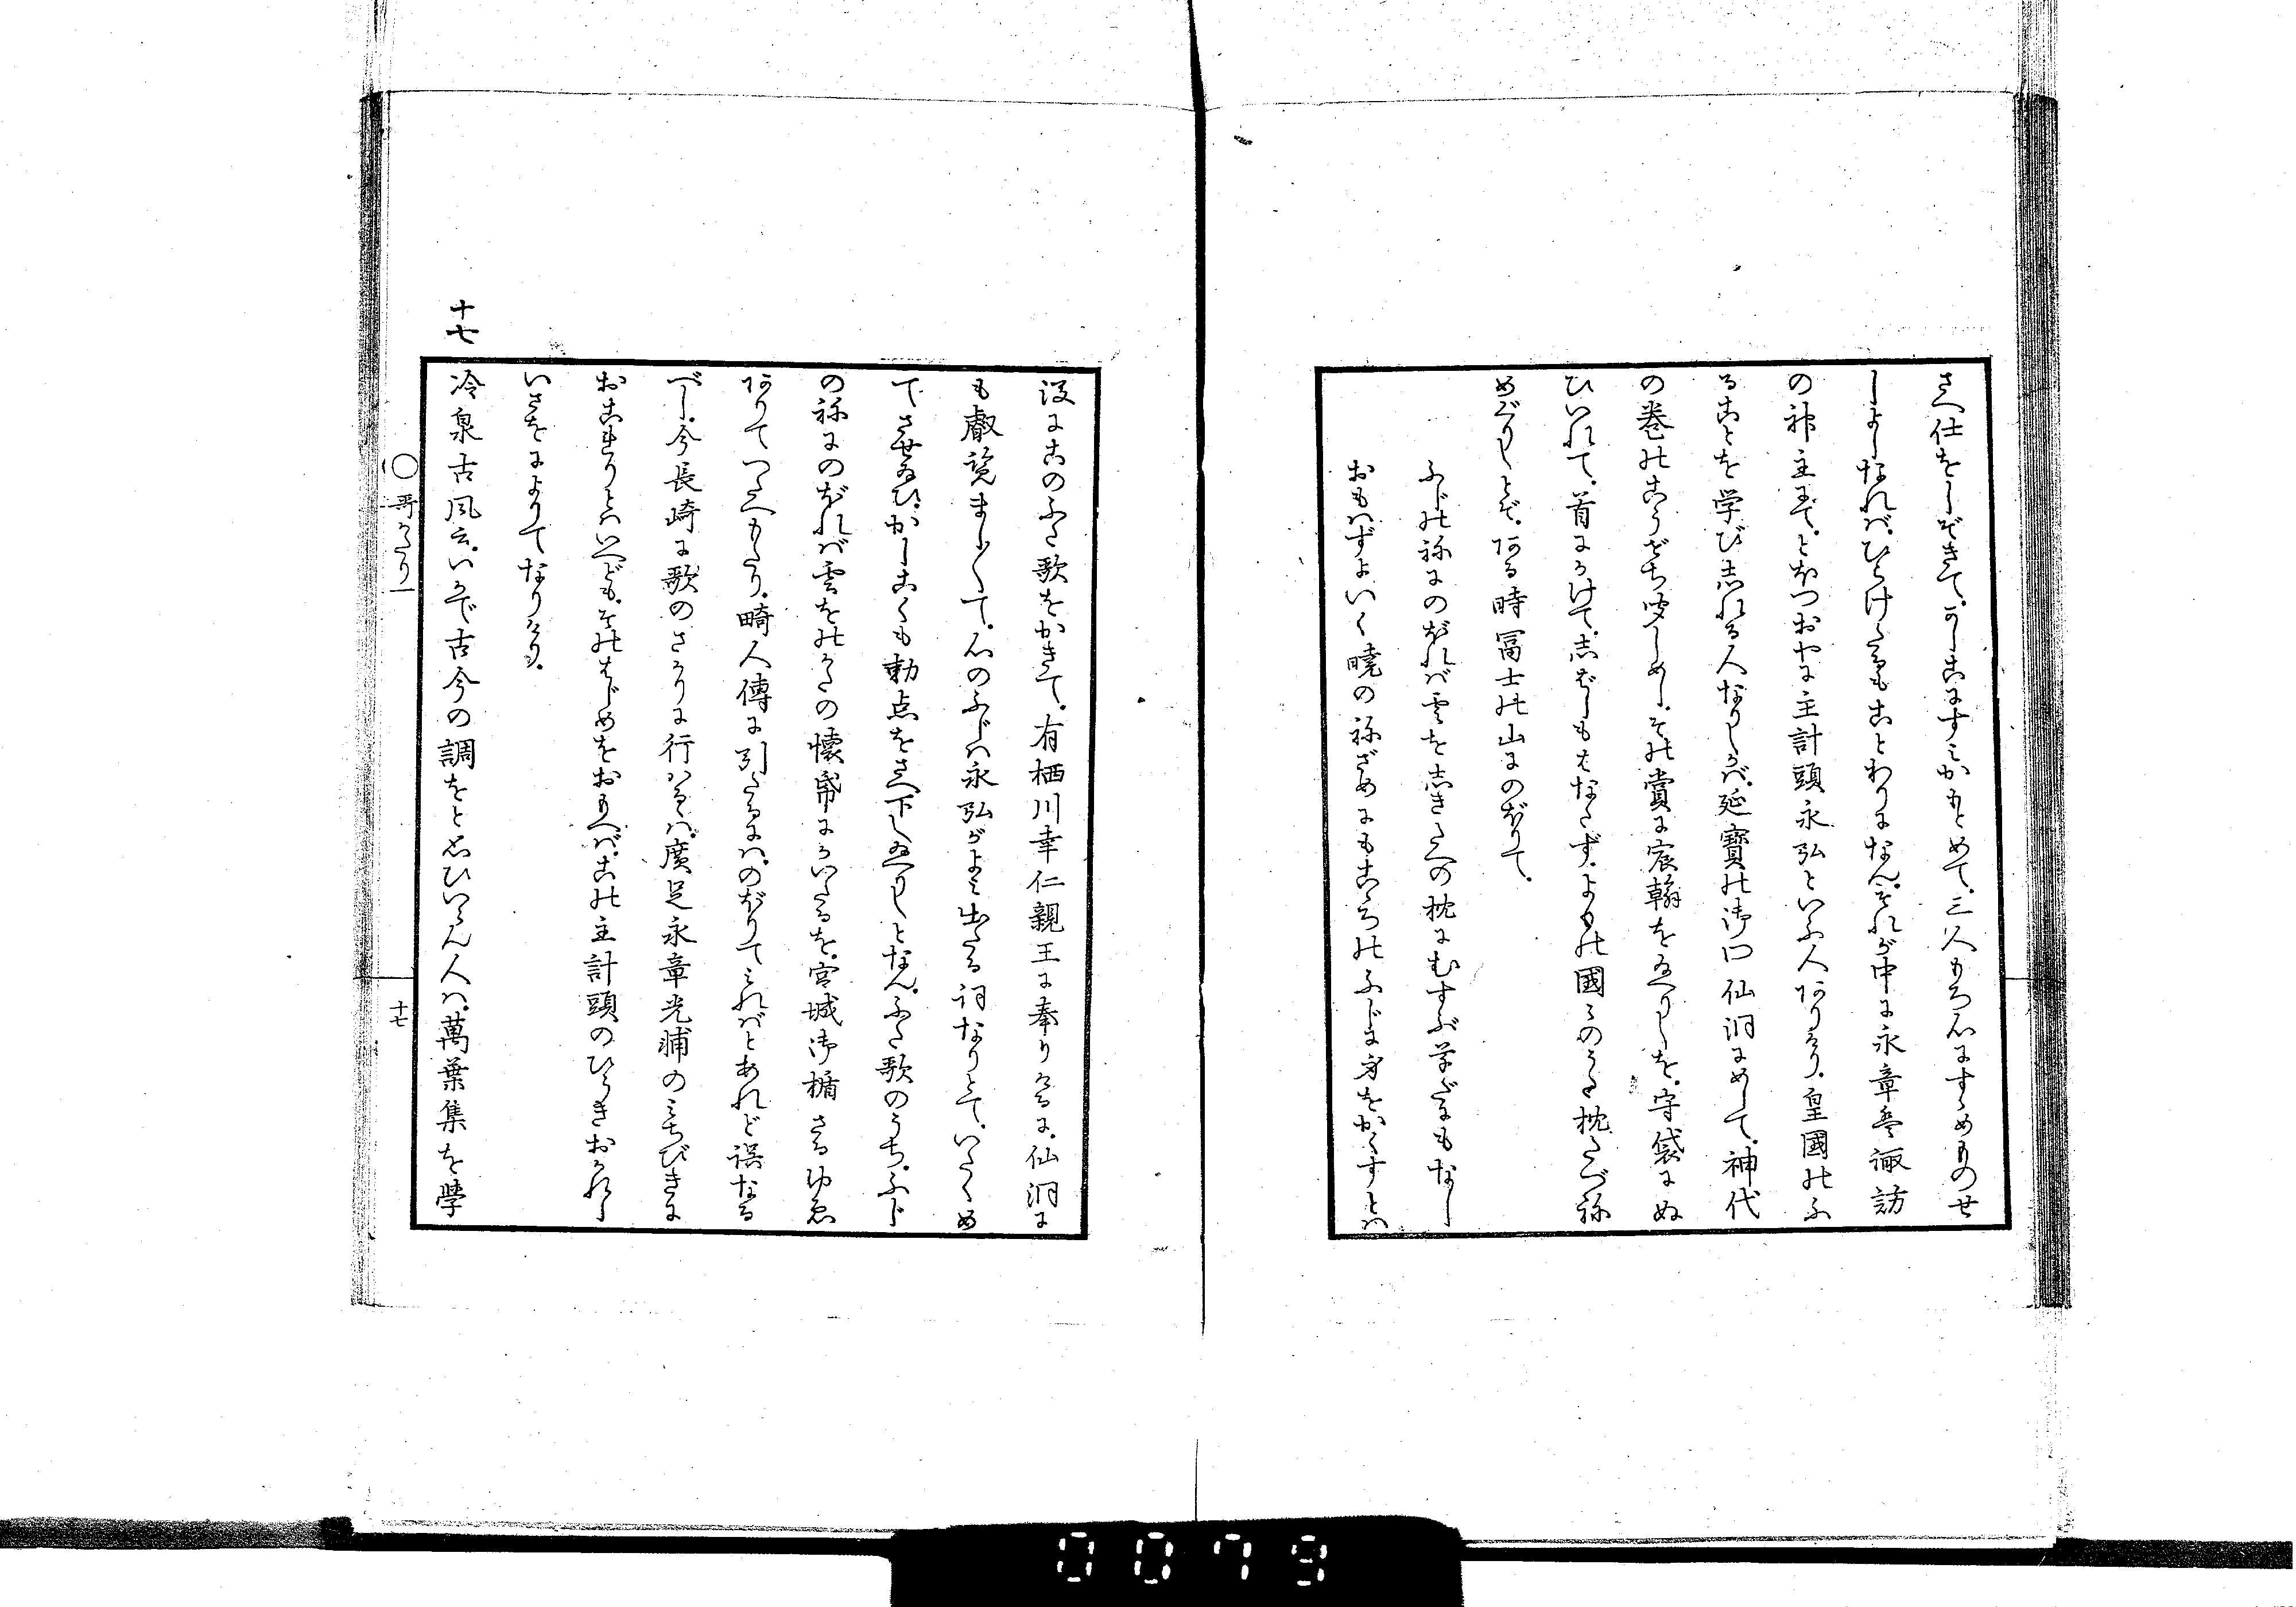 さへ仕をしぞきて。かしこにすみかもとめて。三人もろ心にすゝめものせ
しよしなれば。ひらけたるもことわりになん。それが中に永章是諏訪
の神主にて。とほつおやに主計頭永弘といふ人ありけり。皇國のふ
ることを学び志れる人なりしかば。延寶の御口仙洞にめして。神代
の巻のかうぜち聞しめし。その賞に宸翰をたまへりしを。守袋にぬ
ひいれて。首にかけて。志ばしもはなたず。よもの國々のうた枕たづね
めぐりしとぞ。ある時冨士の山にのぼりて。
ふじのねにのぼれば雲を志きたへの枕にむすぶ草だにもなし
おもはずよいく曉のねざめにもこゝろのふじに身をかくすとは
後にこのふた歌をかきて。有栖川幸仁親王に奉りけるに。仙洞に
も叡覧まし〳〵て。心のふじハ永弘がよミ出たる詞なりとて。いたくめ
でさせ給ひ。かしこくも勅点をさへ下し給へりしとなん。ふた歌のうち。ふじ
のねにのぼれば雲をのかたの懐帋にかいたるを。宮城御楯さるゆゑ
ありてつたへもたり。畸人傳に引たるにハ。のぼりてミればとあれど誤なる
べし。今長崎に歌のさかりに行ハるゝハ。廣足永章光浦のミちびきに
おこれりとハいへども。そのはじめをおもへば。この主計頭のひらきおかれし
いさをによりてなりけり。
十七
冷泉古風云。いかで古今の調をと思ひいらん人ハ。萬葉集を學
〇哥かたり一
十七